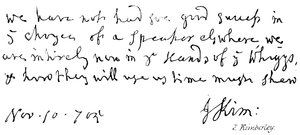 we have not had soe good success in
ye choyce of a speaker elswhere we
are intirely now in ye hands of ye Whiggs,
& how they will use us time must shew
Nov. 10. 705 J Kim:
E Kimberley